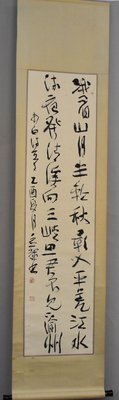 峨眉山月半輪秋影入平羌江水
流夜發清溪向三峡思君不見下渝州
乙酉夏月